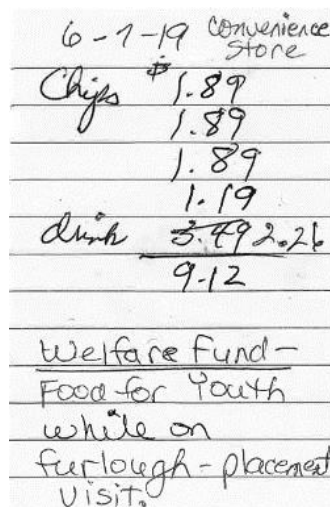 6-7-19 Convenience
Store
Chips $1.89
1.89
1.89
1.19
drink 3.49 2.26
9.12
Welfare Fund-
Food for Youth
while on
furlough-placement
visit.